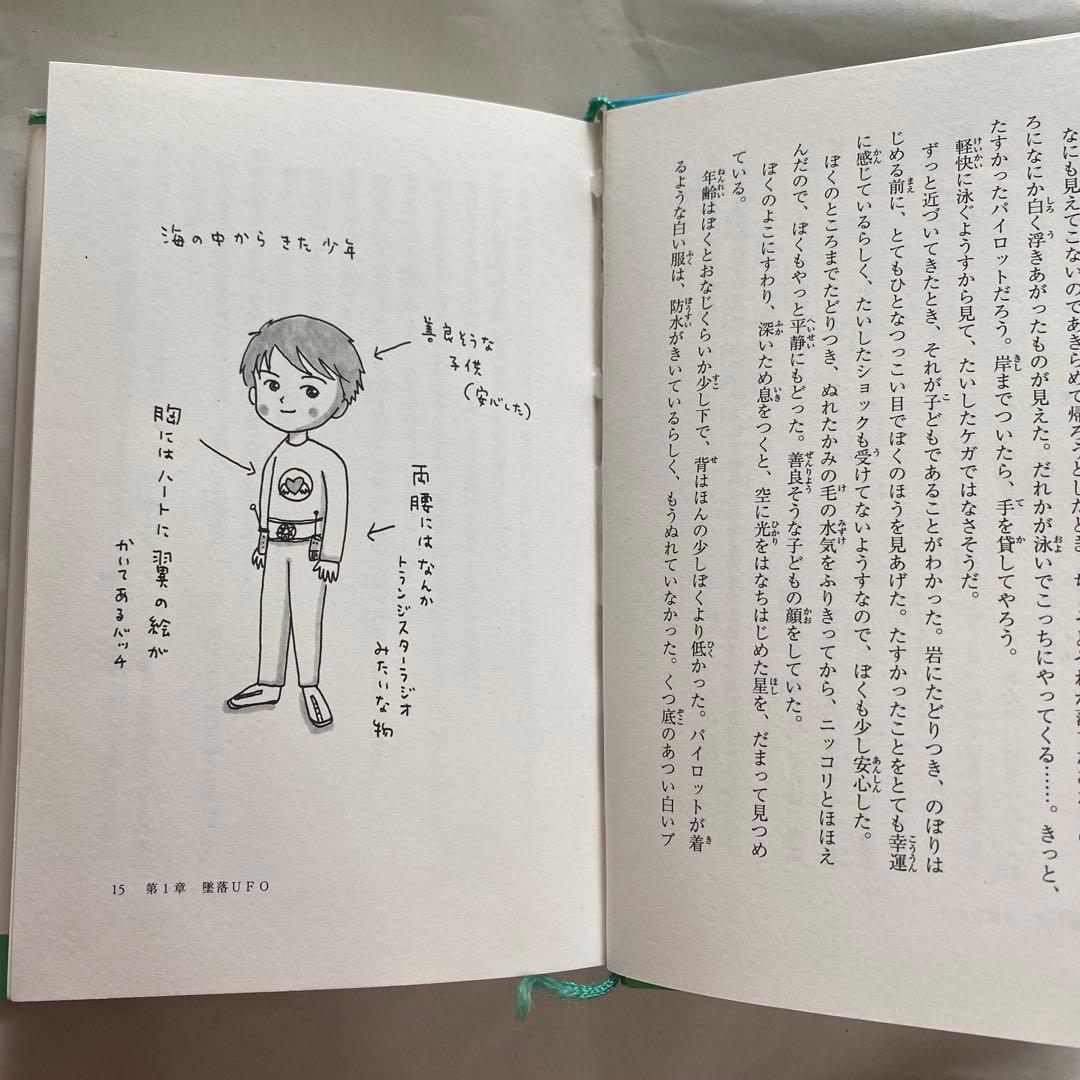 なにも見えてこないのであきらめて帰ろうとしたとき、
ろになにか白く浮きあがったものが見えた。だれかが泳いでこっちにやってくる……。きっと、
たすかったパイロットだろう。岸までついたら、手を貸してやろう。
軽快に泳ぐようすから見て、たいしたケガではなさそうだ。
ずっと近づいてきたとき、それが子どもであることがわかった。岩にたどりつき、のぼりは
じめる前に、とてもひとなつっこい目でぼくのほうを見あげた。たすかったことをとても幸運
に感じているらしく、たいしたショックも受けてないようすなので、ぼくも少し安心した。
ぼくのところまでたどりつき、ぬれたかみの毛の水気をふりきってから、ニッコリとほほえ
んだので、ぼくもやっと平静にもどった。善良そうな子どもの顔をしていた。
ぼくのよこにすわり、深いため息をつくと、空に光をはなちはじめた星を、だまって見つめ
ている。
年齢はぼくとおなじくらいか少し下で、背はほんの少しぼくより低かった。パイロットが着
るような白い服は、防水がきいているらしく、もうぬれていなかった。くつ底のあつい白いブ
海の中からきた少年
善良そうな
子供
(安心した)
両腰にはなんか
トランジスターラジオ
みたいな物
胸にはハートに翼の絵が
かいてあるバッチ
15 第1章 墜落UFO